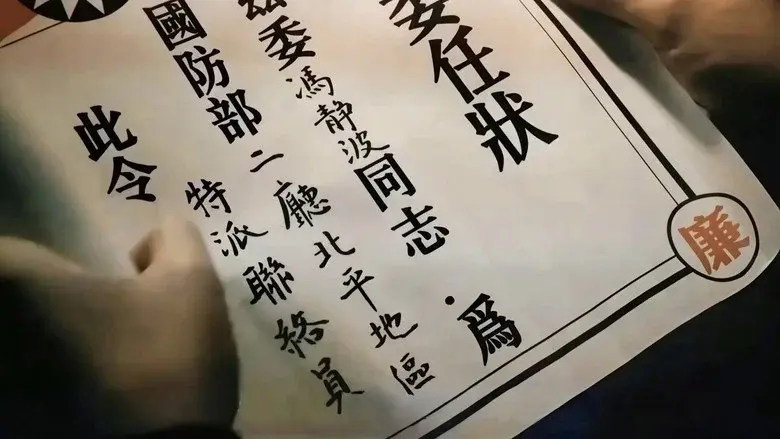 委任狀
兹委馮静波同志·爲
國防部二廳北平地區
特派聯絡員
此令
廉